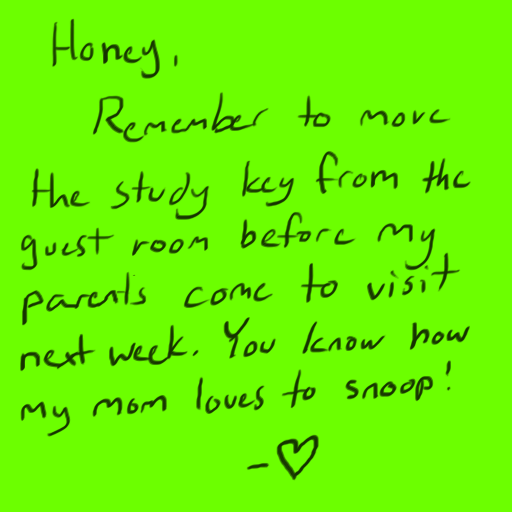 Honey,
Remember to move
the study key from the
guest room before my
parents come to visit
next week. You know how
my mom loves to snoop!
-♡